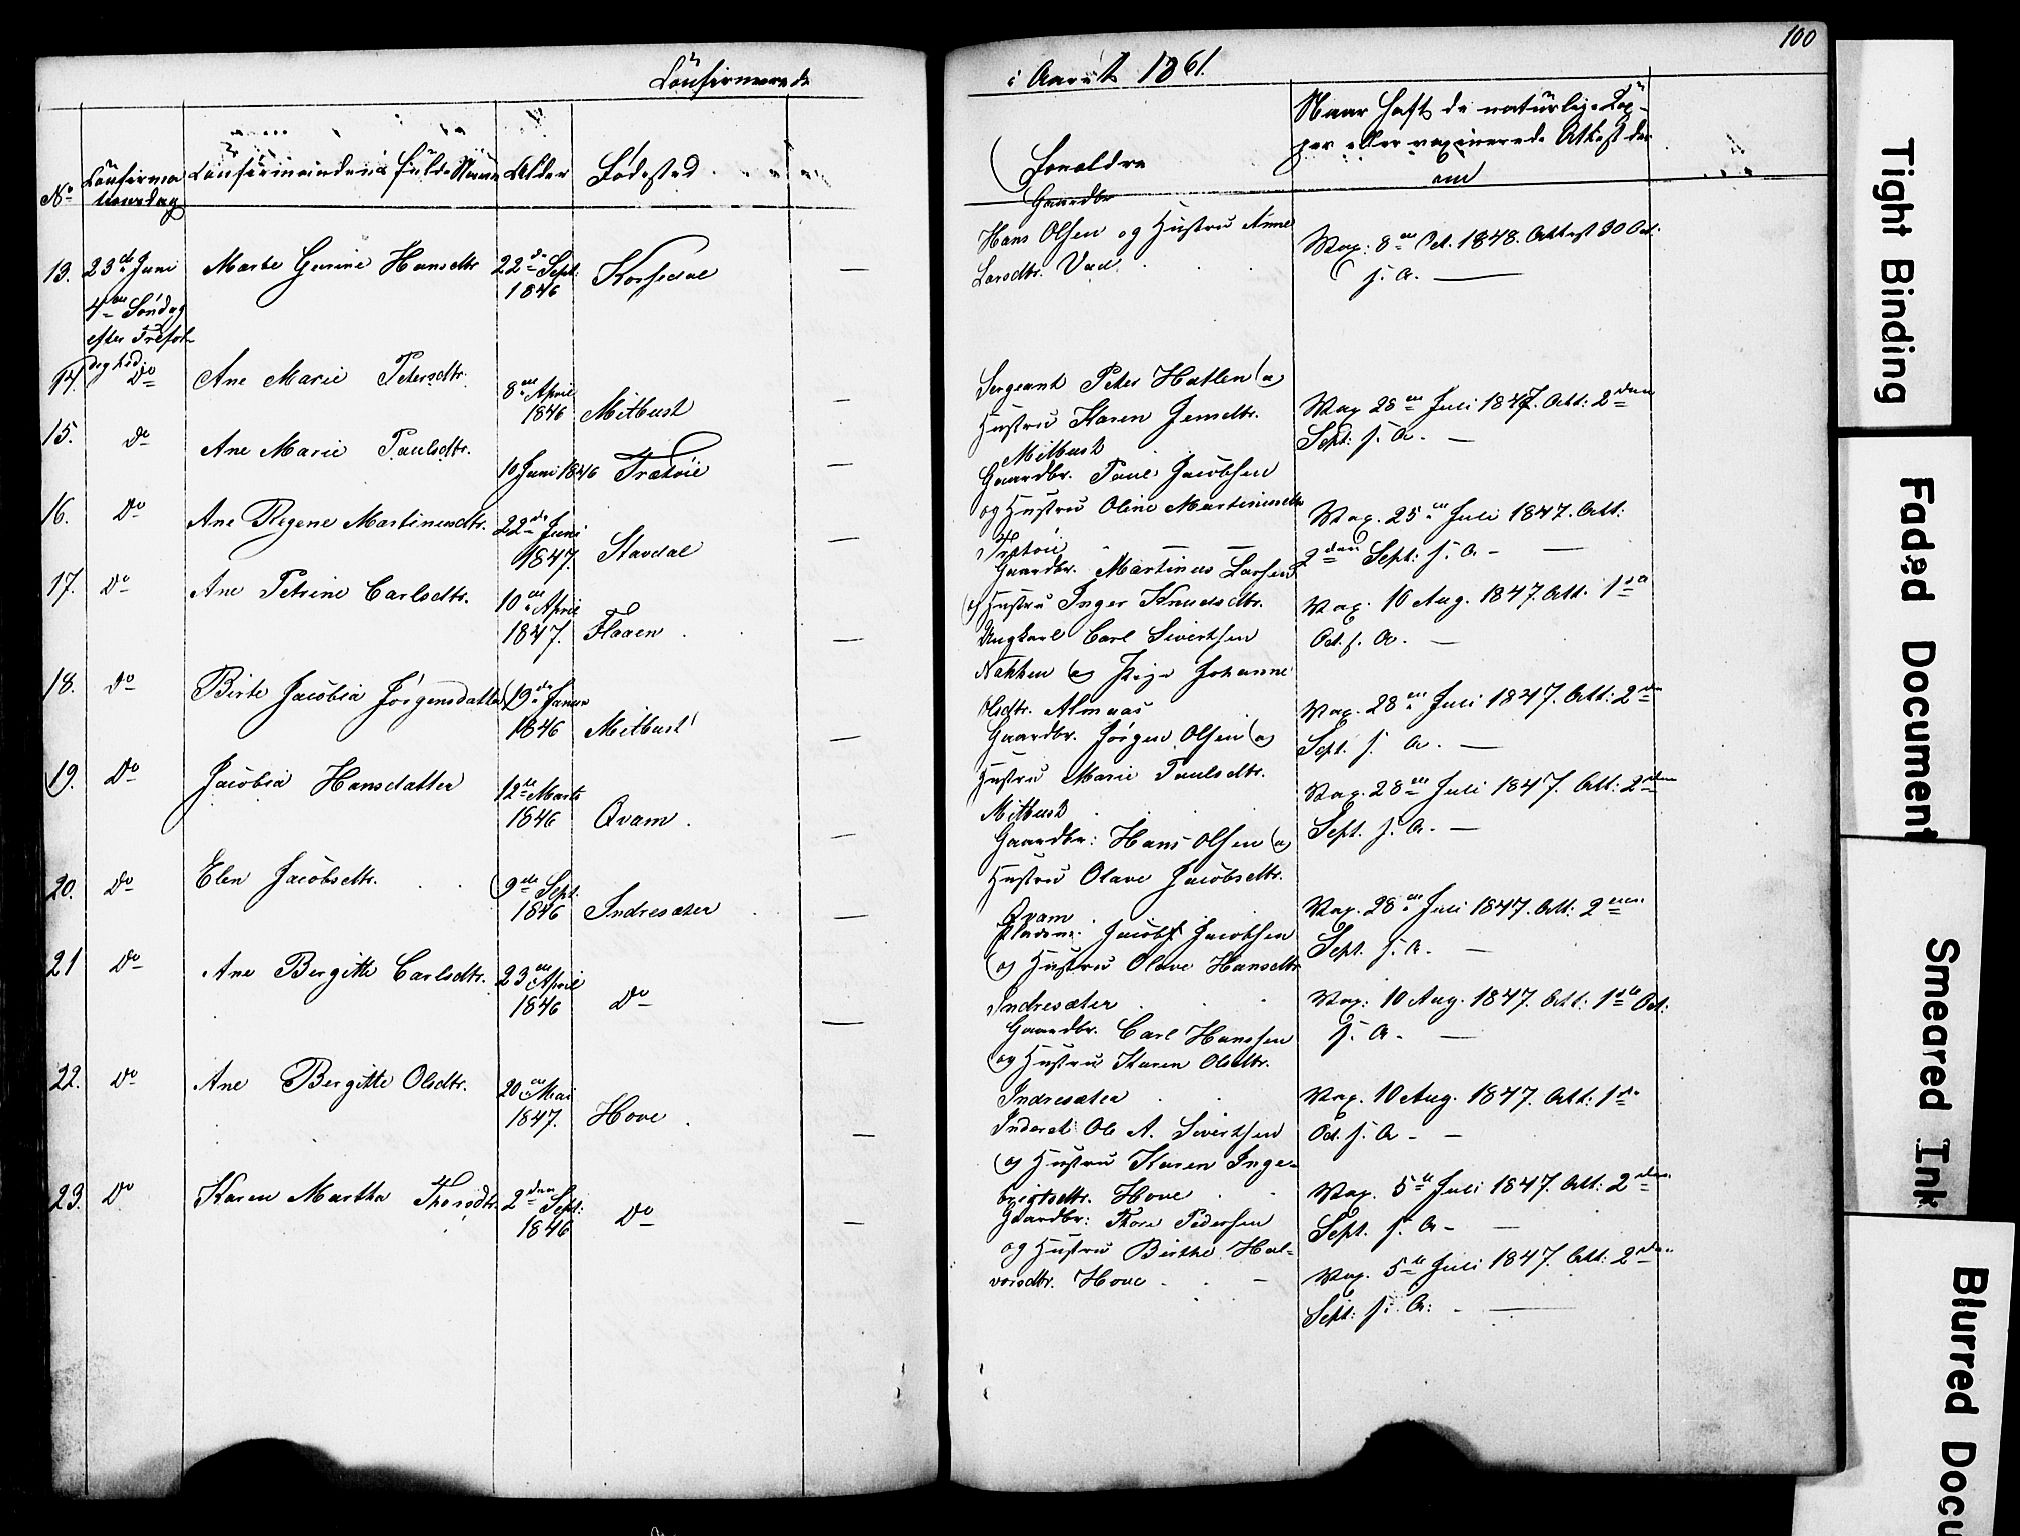 Confirmerede
No
Confirma
tionsdag
Confirmandens fulde Navn
Alder
Fødested
13.
23de Juni
4de Søndag
efter Trefol-
dighed.
Marte Gurine Hansdtr
22de Sept.
1846
Korsedal
—
14.
Do
Ane Marie Petersdtr.
8de April
1846
Mitbust
—
15.
Do
Ane Marie Paulsdtr.
10 Juni 1846
Trætøie
—
16.
Do
Ane Regene Martinusdtr.
22de Juni
1847.
Stavdal
—
17.
Do
Ane Petrine Carlsdtr.
10de April
1847.
Flaaen
—
18.
Do
Birte Jacobia Jørgensdatter
19de Januar
1846
Mitbust
—
19.
Do
Jacobia Hansdatter
12te Marts
1846
Qvam.
—
20.
Do
Elen Jacobsdtr.
9de Sept.
1846
Indresæter
—
21
Do
Ane Bergitte Carlsdtr.
23de April
1846
Do
—
22.
Do
Ane Bergitte Olsdtr.
20de Mai
1847.
Hove
—
23.
Do
Karen Martha Thorsdtr.
2den Sept:
1846
Do
—
100
i Aaret 1861.
Forældre
Naar haft de naturlige Kop-
per eller vaxinerede Attest der
om
Gaardbr
Hans Olsen og Hustru Anne
Larsdtr. Vad.
Vax: 8de Oct. 1848. Attest 30 Oct.
s. A. —
Sergeant Peter Hatlen og
Hustru Karen Jensdtr.
Mitbust
Vax 28de Juli 1847. Att: 2den
Sept: s. A. —
Gaardbr. Paul Jacobsen
og Hustru Oline Martinusdtr
Trætøie
Vax. 25de Juli 1847. Att:
2den Sept: s. A. —
Gaardbr. Martinus Larsen
og Hustru Inger Knudsdtr.
Vax. 10 Aug. 1847. Att. 1ste
Oct. s. A. —
Ungkarl Carl Sivertsen
Nakken og Pige Johanne
Olsdtr. Almaas
Vax. 28de Juli 1847. Att: 2den
Sept. s. A. —
Gaardbr. Jørgen Olsen og
Hustru Marie Paulsdtr.
Mitbust
Vax. 28de Juli 1847. Att: 2den
Sept. s. A. —
Gaardbr: Hans Olsen og
Hustru Olave Jacobsdtr.
Qvam
Vax. 28de Juli 1847. Att: 2den
Sept. s. A. —
Pladsm. Jacob Jacobsen
og Hustru Olave Hansdtr
Indresæter
Vax: 10 Aug. 1847. Att: 1ste Oct:
s. A. —
Gaardbr. Carl Hanssen
og Hustru Karen Olsdtr.
Indresæter
Vax. 10 Aug. 1847. Att: 1ste
Oct. s. A. —
Inderst Ole A. Sivertsen
og Hustru Karen Inge-
brigtsdtr. Hove
Vax. 5te Juli 1847. Att: 2den
Sept. s. A. —
Gaardbr: Thore Pedersen
og Hustru Birthe Hal-
vorsdtr. Hove. —
Vax. 5te Juli 1847. Att: 2den
Sept: s. A: —
Tight Binding
Faded Document
Smeared Ink
Blurred Docu